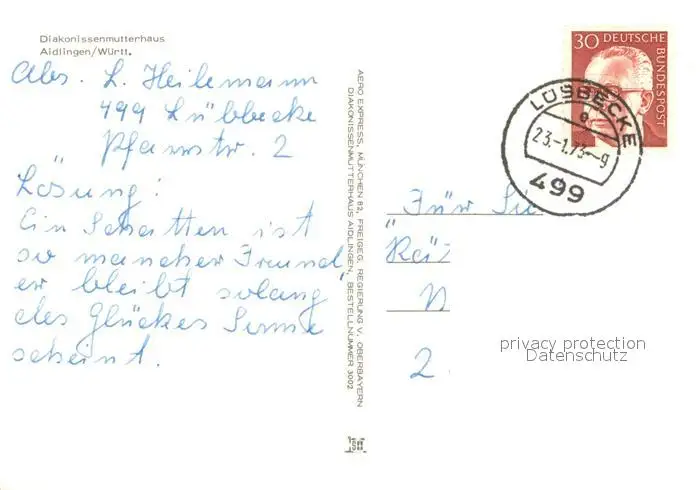 Diakonissenmutterhaus
Aidlingen/Württ.
Abs. L. Heilemann
499 Lübbecke
Pfarrstr. 2
Lösung:
Ein Schatten ist
so mancher Freund,
er bleibt solang
des Glückes Sonne
scheint.
AERO EXPRESS, MÜNCHEN 82, FREIGEG. REGIERUNG V. OBERBAYERN
DIAKONISSENMUTTERHAUS AIDLINGEN, BESTELLNUMMER 3002
30 DEUTSCHE
BUNDESPOST
LÜBBECKE
e
23.-1.73-9
499
"Für Sie
Rä
2
privacy protection
Datenschutz